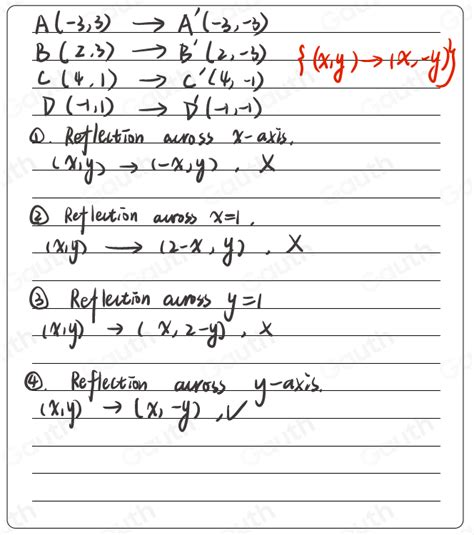 A(-3,3) → A'(-3,-3)
B(2,3) → B'(2,-3) {(x,y)→(x,-y)}
C(4,1) → C'(4,-1)
D(-1,1) → D'(-1,-1)
①. Reflection across x-axis.
(x,y) → (-x,y). X
② Reflection across x=1.
(x,y) → (2-x, y). X
③ Reflection across y=1
(x,y) → (x, 2-y). X
④. Reflection across y-axis.
(x,y) → (x, -y), ✓